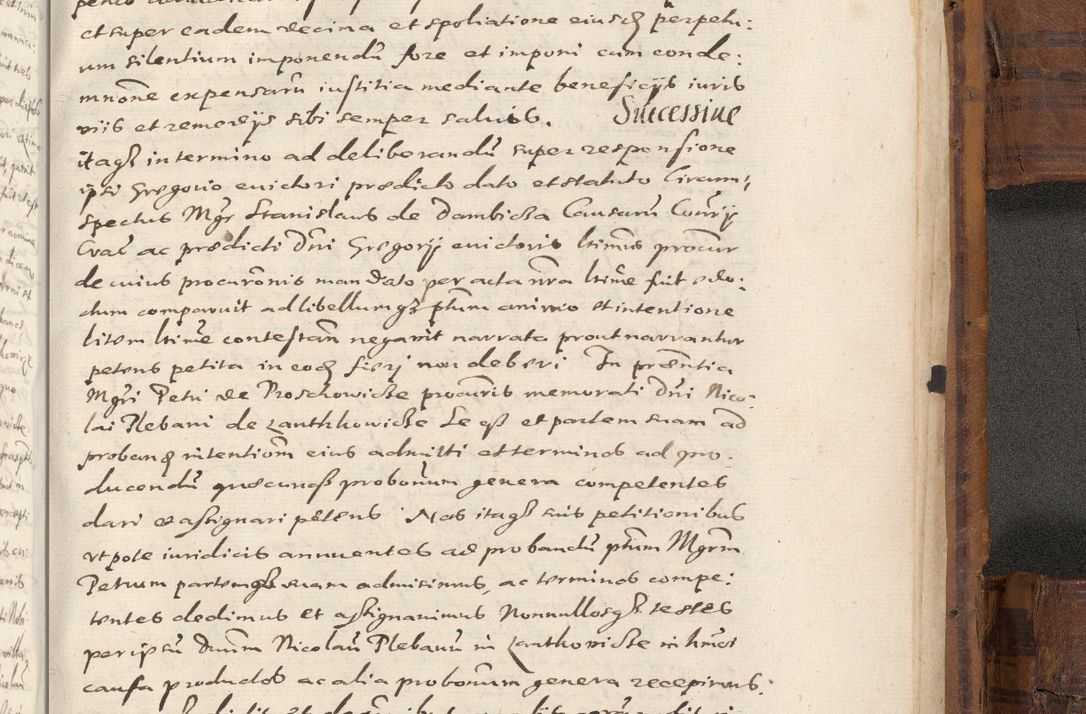 et super eadem decima et spoliatione eiusdẽ perpetu:
um silentium imponendũ fore et imponi cum conde:
mnõne expensarũ iustitia mediante beneficijs iuris
viis et remedijs sibi semper salvis. Successive
itaqꝫ in termino ad deliberandũ super responsione
ipsi Gregorio evictori prædicto dato et statuto Circum:
spectus Mgr Stanislaus de Dambicza Causarũ Curiȩ
Crac ac prædicti Dñi Gregorij evictoris ltimus procur
de cuius procurõnis mandato per acta nrã ltime fuit edo:
ctum comparuit ad libellumqꝫ ptum animo et intentione
litem ltime contestan negavit narrata prout narrantur
petens petita in eodẽ fierj non deberi In præntia
Mgri Petri de Proschowicze procuris memorati Dñi Nico:
lai Plebani de Xanthkowicze Se qꝫ et partem suam ad
probandẽ intentiom eius admitti et terminos ad pro:
ducendũ quæcunqꝫ probonum genera competentes
dari et assignari petens Nos itaqꝫ suis petitionibus
utpote iuridicis annuentes ad probandũ ptum Mgrm
Petrum partemqꝫ suam admisimus, ac terminos compe:
tentes dedimus et assignavimus Nonnullosqꝫ testes
per ipsũ Dnum Nicolaũ Plebanũ in Xanthkowicze in hmoi
causa productos ac alia probonum genera recepimus: